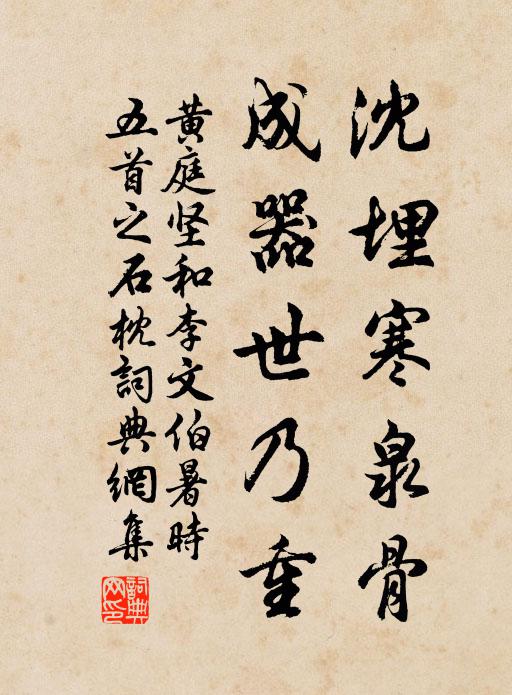 沈埋寒泉骨
成器世乃重
黄庭坚和李文伯暑時
五首之石枕詞典網集
詞典
网印